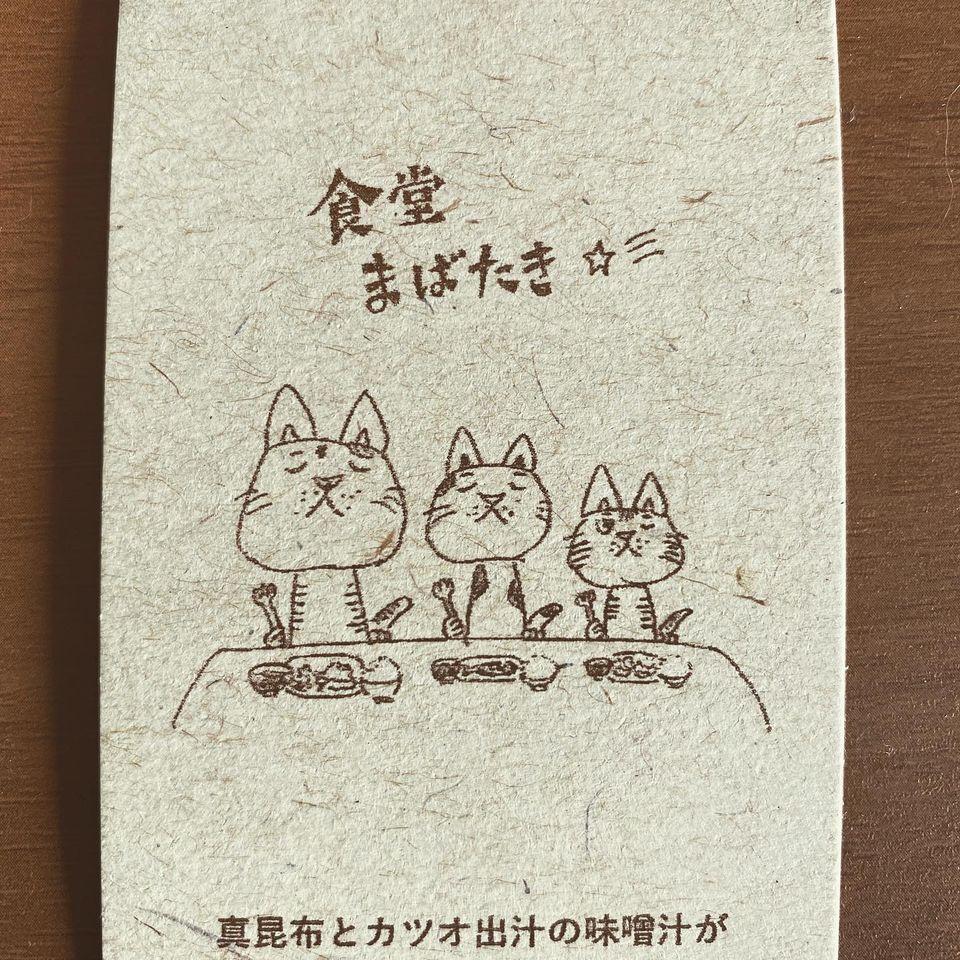 食堂
まばたき☆彡
真昆布とカツオ出汁の味噌汁が